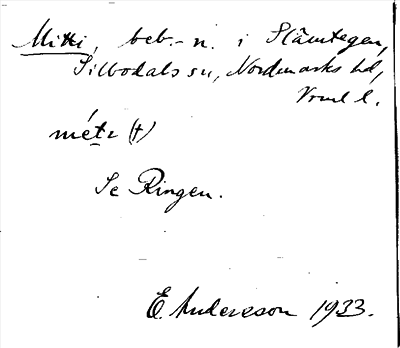 Mitti, beb.-n. i Slämtegen,
Silbodals sn, Nordmarks hd,
Vrml l.
métɩ (†)
Se Ringen.
E. Andersson 1933.